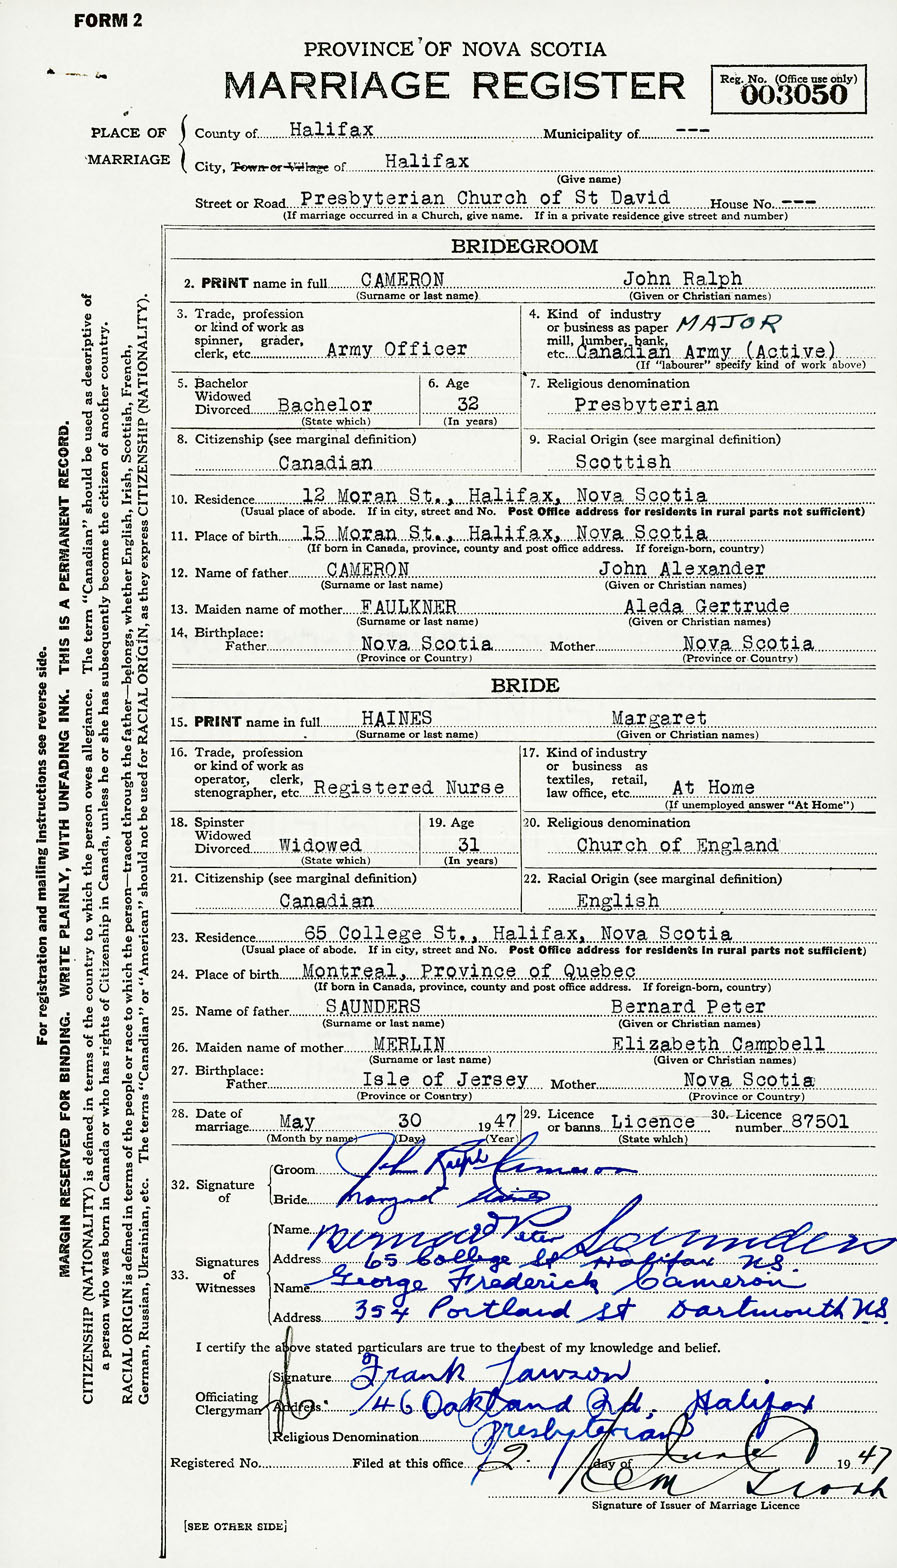 FORM 2
PROVINCE OF NOVA SCOTIA
MARRIAGE REGISTER
Reg. No. (Office use only)
003050
PLACE OF MARRIAGE
County of Halifax Municipality of ---
City, Town or Village of Halifax
(Give name)
Street or Road Presbyterian Church of St David House No. ---
(If marriage occurred in a Church, give name. If in a private residence give street and number)
BRIDEGROOM
2. PRINT name in full CAMERON John Ralph
(Surname or last name) (Given or Christian names)
3. Trade, profession or kind of work as spinner, grader, clerk, etc. Army Officer
4. Kind of industry or business as paper mill, lumber, bank, etc. MAJOR Canadian Army (Active)
(If "labourer" specify kind of work above)
5. Bachelor Widowed Divorced Bachelor
(State which)
6. Age 32
(In years)
7. Religious denomination
Presbyterian
8. Citizenship (see marginal definition)
Canadian
9. Racial Origin (see marginal definition)
Scottish
10. Residence 12 Moran St., Halifax, Nova Scotia
(Usual place of abode. If in city, street and No. Post Office address for residents in rural parts not sufficient)
11. Place of birth 15 Moran St., Halifax, Nova Scotia
(If born in Canada, province, county and post office address. If foreign-born, country)
12. Name of father CAMERON John Alexander
(Surname or last name) (Given or Christian names)
13. Maiden name of mother FAULKNER Aleda Gertrude
(Surname or last name) (Given or Christian names)
14. Birthplace:
Father Nova Scotia Mother Nova Scotia
(Province or Country) (Province or Country)
BRIDE
15. PRINT name in full HAINES Margaret
(Surname or last name) (Given or Christian names)
16. Trade, profession or kind of work as operator, clerk, stenographer, etc. Registered Nurse
17. Kind of industry or business as textiles, retail, law office, etc. At Home
(If unemployed answer "At Home")
18. Spinster Widowed Divorced Widowed
(State which)
19. Age 31
(In years)
20. Religious denomination
Church of England
21. Citizenship (see marginal definition)
Canadian
22. Racial Origin (see marginal definition)
English
23. Residence 65 College St., Halifax, Nova Scotia
(Usual place of abode. If in city, street and No. Post Office address for residents in rural parts not sufficient)
24. Place of birth Montreal, Province of Quebec
(If born in Canada, province, county and post office address. If foreign-born, country)
25. Name of father SAUNDERS Bernard Peter
(Surname or last name) (Given or Christian names)
26. Maiden name of mother MERLIN Elizabeth Campbell
(Surname or last name) (Given or Christian names)
27. Birthplace:
Father Isle of Jersey Mother Nova Scotia
(Province or Country) (Province or Country)
28. Date of marriage May 30 1947
(Month by name) (Day) (Year)
29. Licence or banns Licence
(State which)
30. Licence number 87501
32. Signature of
Groom John Ralph Cameron
Bride Margaret Haines
33. Signatures of Witnesses
Name Bernard Peter Saunders
Address 65 College St Halifax N.S.
Name George Frederick Cameron
Address 354 Portland St Dartmouth N.S.
I certify the above stated particulars are true to the best of my knowledge and belief.
Officiating Clergyman
Signature Frank Lawson
Address 146 Oakland Rd, Halifax
Religious Denomination Presbyterian
Registered No. Filed at this office 2 day of June 1947
Signature of Issuer of Marriage Licence
[SEE OTHER SIDE]
For registration and mailing instructions see reverse side.
MARGIN RESERVED FOR BINDING. WRITE PLAINLY, WITH UNFADING INK. THIS IS A PERMANENT RECORD.
CITIZENSHIP (NATIONALITY) is defined in terms of the country to which the person owes allegiance. The term "Canadian" should be used as descriptive of
a person who was born in Canada or who has rights of Citizenship in Canada, unless he or she has subsequently become the citizen of another country.
RACIAL ORIGIN is defined in terms of the people or race to which the person—traced through the father—belongs, whether English, Irish, Scottish, French,
German, Russian, Ukrainian, etc. The terms "Canadian" or "American" should not be used for RACIAL ORIGIN, as they express CITIZENSHIP (NATIONALITY).